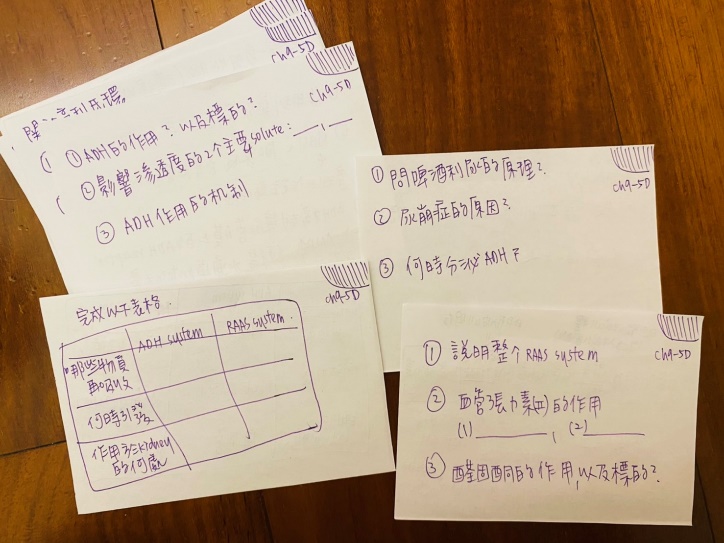 ch9-5D
ch9-5D
① ADH的作用? 以及標的?
② 影響滲透度的2个主要solute: ___, ___
③ ADH作用的机制
ch9-5D
① 問啤酒利尿的原理?
② 尿崩症的原因?
③ 何時分泌ADH?
ch9-5D
完成以下表格.
ADH system
RAAS system
哪些物質
再吸收
何時引發
作用於kidney
的何處
ch9-5D
① 說明整个 RAAS system
② 血管張力素(II)的作用
(1) ________, (2) ________
③ 醛固酮的作用,以及標的?